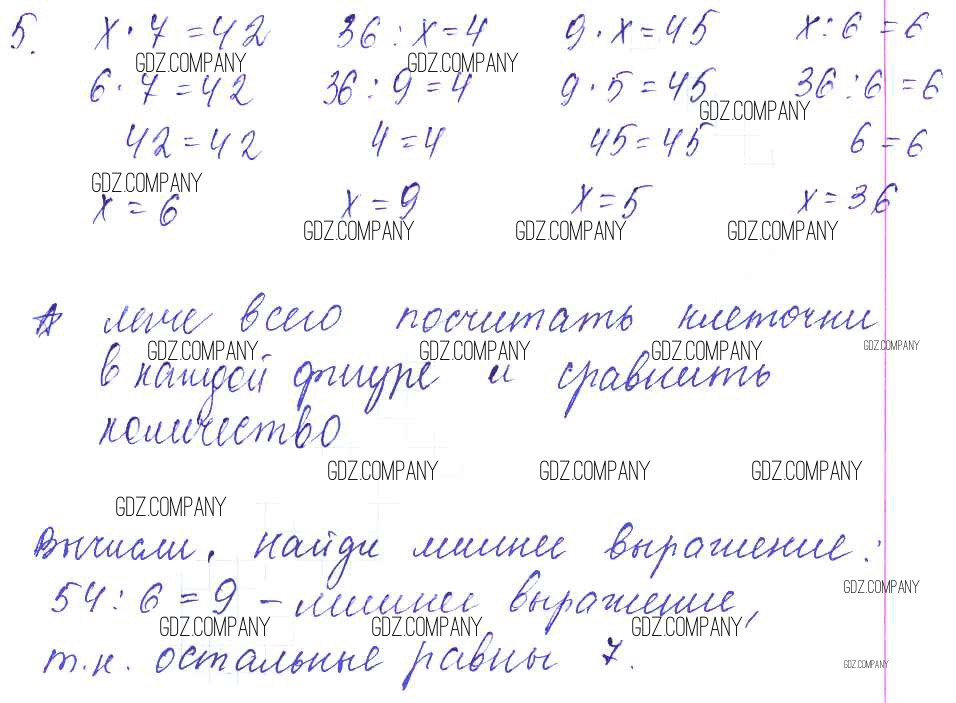 5. x · 7 = 42 36 : x = 4 9 · x = 45 x : 6 = 6
GDZ.COMPANY GDZ.COMPANY
6 · 7 = 42 36 : 9 = 4 9 · 5 = 45 36 : 6 = 6
GDZ.COMPANY
42 = 42 4 = 4 45 = 45 6 = 6
GDZ.COMPANY
x = 6 x = 9 x = 5 x = 36
GDZ.COMPANY GDZ.COMPANY GDZ.COMPANY
легче всего посчитать клеточки
GDZ.COMPANY GDZ.COMPANY GDZ.COMPANY GDZ.COMPANY
в каждой фигуре и сравнить
количество
GDZ.COMPANY GDZ.COMPANY GDZ.COMPANY
GDZ.COMPANY
Вычисли. Найди лишнее выражение:
GDZ.COMPANY
54 : 6 = 9 – лишнее выражение,
GDZ.COMPANY GDZ.COMPANY GDZ.COMPANY
т.к. остальные равны 7.
GDZ.COMPANY